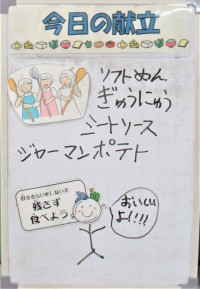 今日の献立
ソフトめん
ぎゅうにゅう
ミートソース
ジャーマンポテト
好ききらいをしないで
残さず
食べよう
おいしい
よ!!!